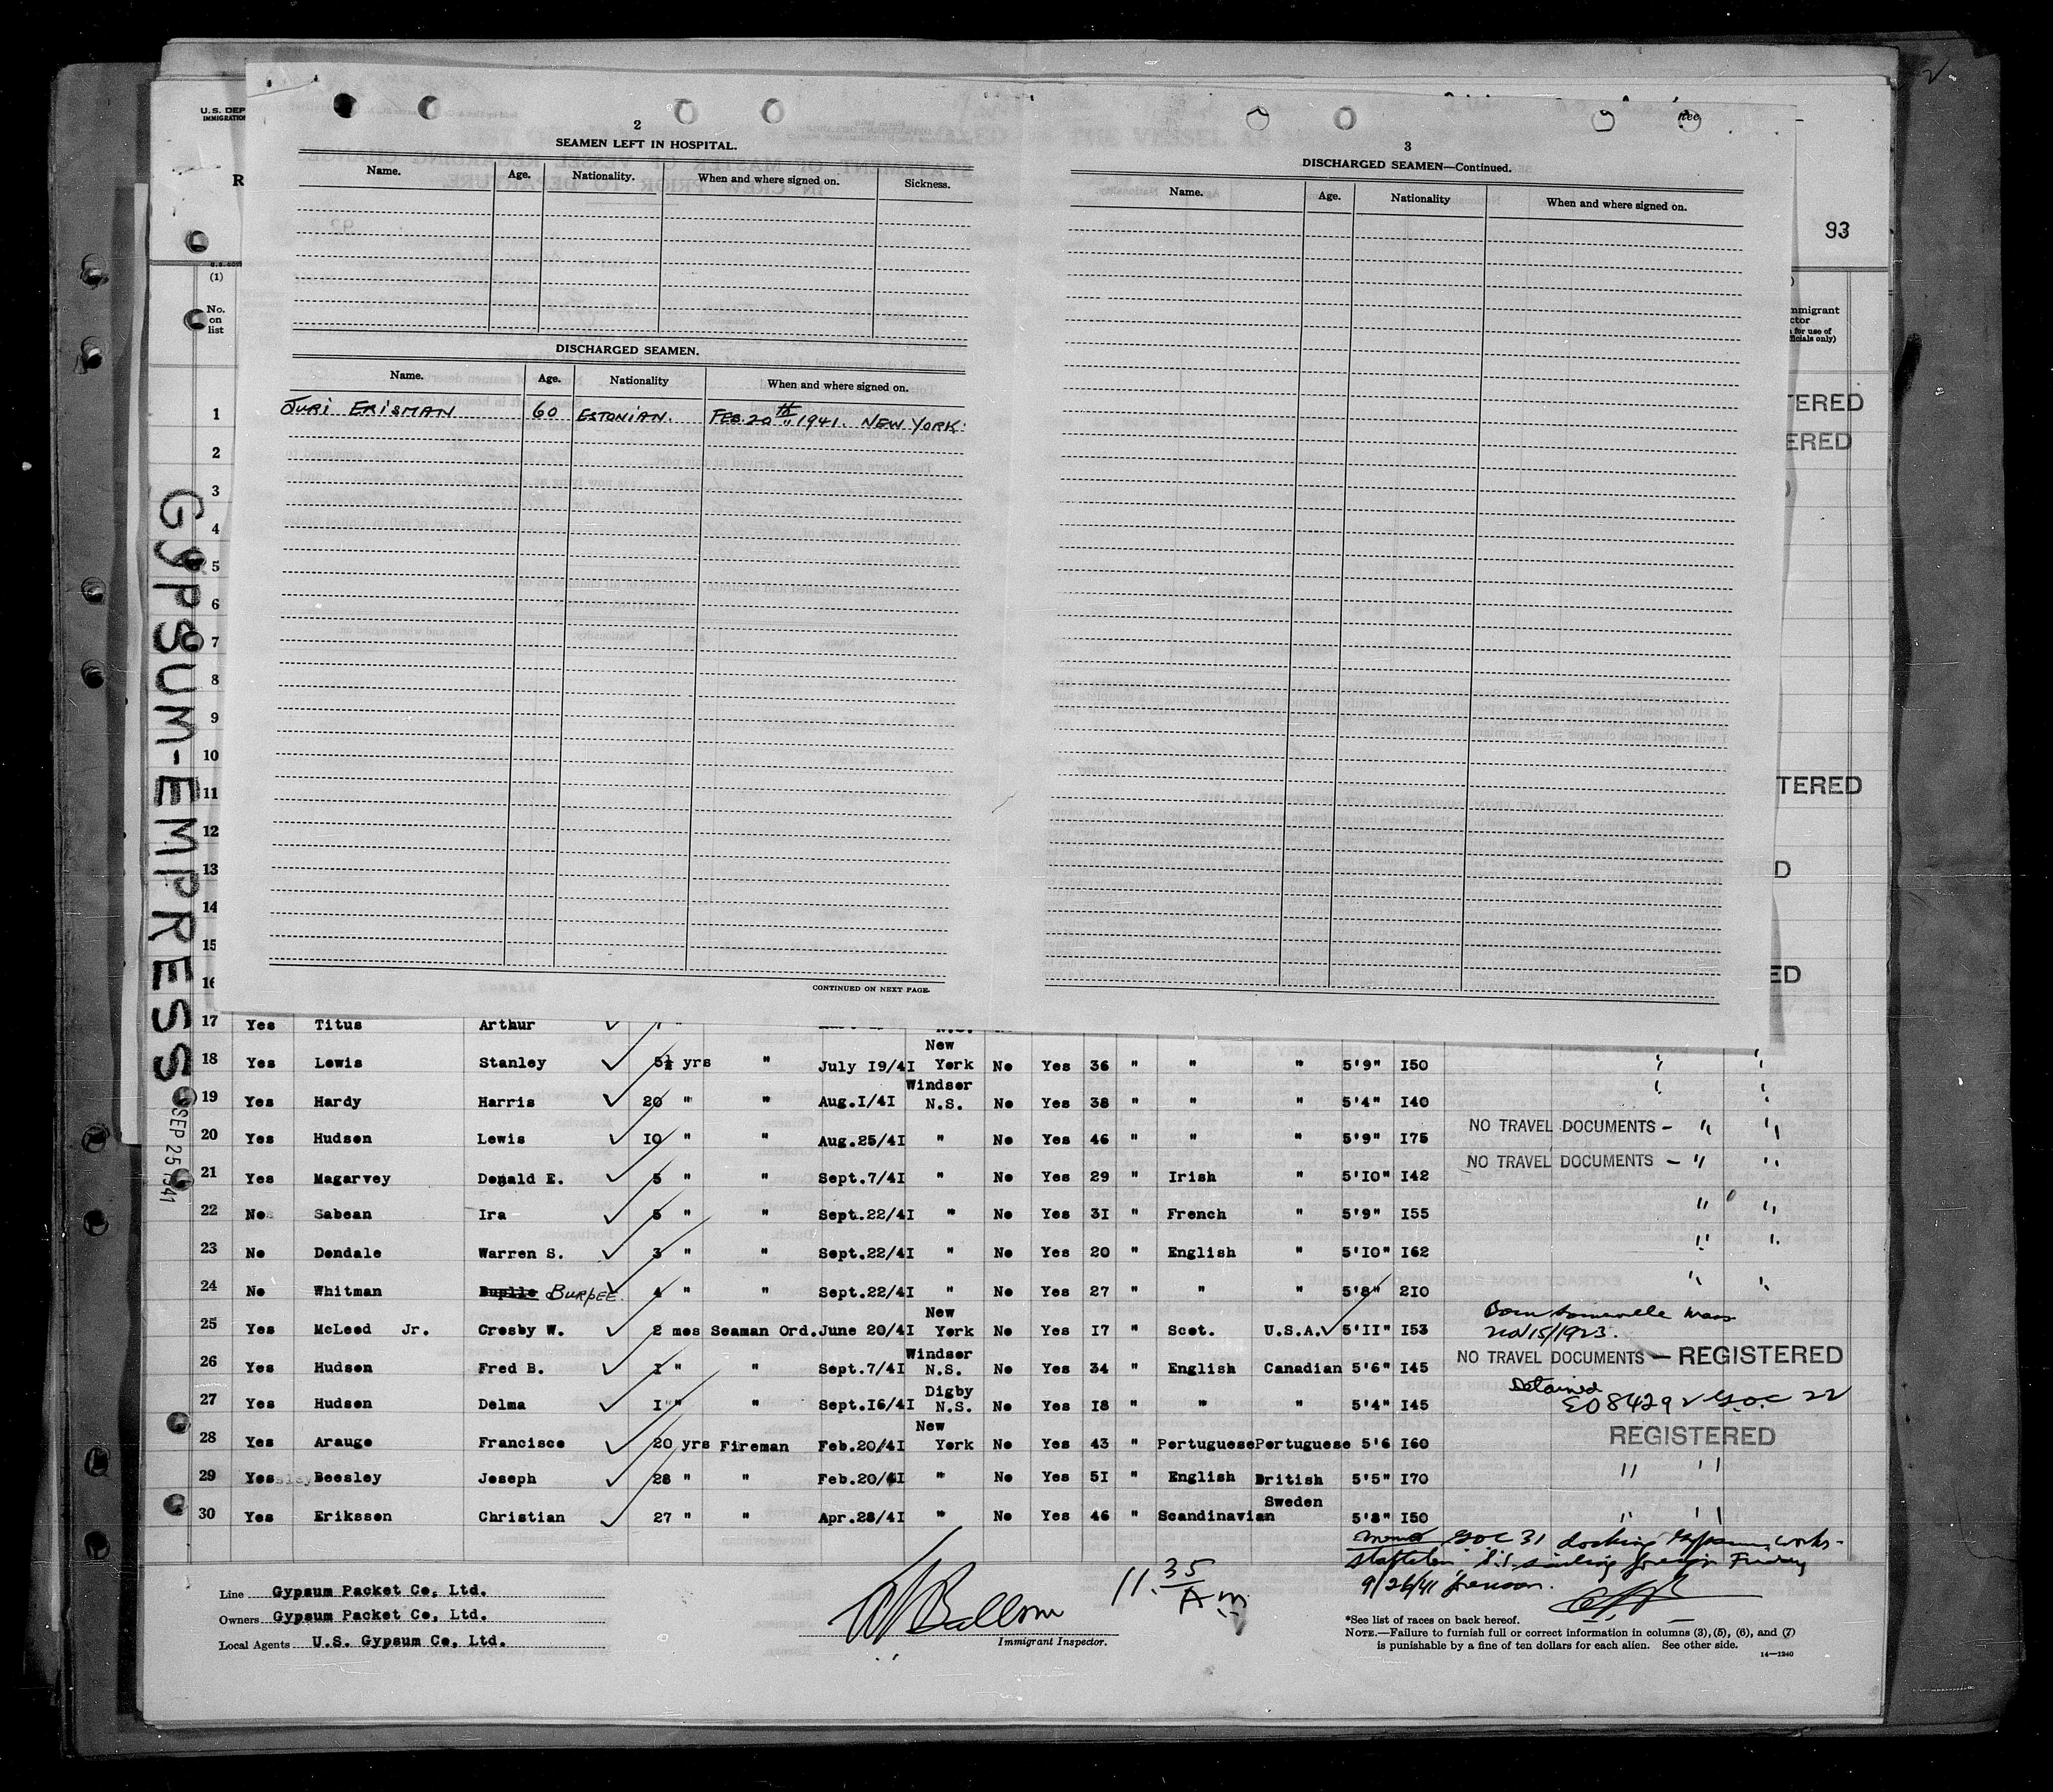 U.S. DEP
IMMIGRATION
R
93
2
SEAMEN LEFT IN HOSPITAL.
Name. Age. Nationality. When and where signed on. Sickness.
DISCHARGED SEAMEN.
Name. Age. Nationality When and where signed on.
JURI ERISMAN 60 ESTONIAN. FEB. 20th, 1941. NEW YORK.
CONTINUED ON NEXT PAGE.
3
DISCHARGED SEAMEN—Continued.
Name. Age. Nationality When and where signed on.
(1)
No.
on
list
mmigrant
ctor
for use of
ficials only)
TERED
ERED
TERED
D
ED
1
2
3
4
5
6
7
8
9
10
11
12
13
14
15
16
GYPSUM-EMPRESS
SEP 25 1941
17 Yes Titus Arthur
18 Yes Lewis Stanley 5½ yrs " July 19/41 New York No Yes 36 " " " 5'9" 150
19 Yes Hardy Harris 20 " " Aug.1/41 Windsor N.S. No Yes 38 " " " 5'4" 140
20 Yes Hudson Lewis 10 " " Aug.25/41 " No Yes 46 " " " 5'9" 175 NO TRAVEL DOCUMENTS - " "
21 Yes Magarvey Donald E. 5 " " Sept.7/41 " No Yes 29 " Irish " 5'10" 142 NO TRAVEL DOCUMENTS - " "
22 No Sabean Ira 5 " " Sept.22/41 " No Yes 31 " French " 5'9" 155 " "
23 No Dondale Warren S. 3 " " Sept.22/41 " No Yes 20 " English " 5'10" 162 " "
24 No Whitman BURPEE. 4 " " Sept.22/41 " No Yes 27 " " " 5'8" 210 " "
25 Yes McLeod Jr. Crosby W. 2 mos Seaman Ord. June 20/41 New York No Yes 17 " Scot. U.S.A. 5'11" 153 Born Somerville Mass Nov 15/1923.
26 Yes Hudson Fred B. 1 " " Sept.7/41 Windsor N.S. No Yes 34 " English Canadian 5'6" 145 NO TRAVEL DOCUMENTS — REGISTERED
27 Yes Hudson Delma 1 " " Sept.16/41 Digby N.S. No Yes 18 " " " 5'4" 145 Detained
28 Yes Araugo Francisco 20 yrs Fireman Feb.20/41 New York No Yes 43 " Portuguese Portuguese 5'6 160 REGISTERED
29 Yes Beesley Joseph 28 " " Feb.20/41 " No Yes 51 " English British 5'5" 170 " "
30 Yes Eriksson Christian 27 " " Apr.28/41 " No Yes 46 " Scandinavian Sweden 5'8" 150 " "
31 docking Gypsum works-
S.I. sailing foreign Friday
9/26/41
Line Gypsum Packet Co, Ltd.
Owners Gypsum Packet Co, Ltd.
Local Agents U.S. Gypsum Co, Ltd.
11.35 Am
Immigrant Inspector.
*See list of races on back hereof.
NOTE.—Failure to furnish full or correct information in columns (3), (5), (6), and (7)
is punishable by a fine of ten dollars for each alien. See other side.
14—1240